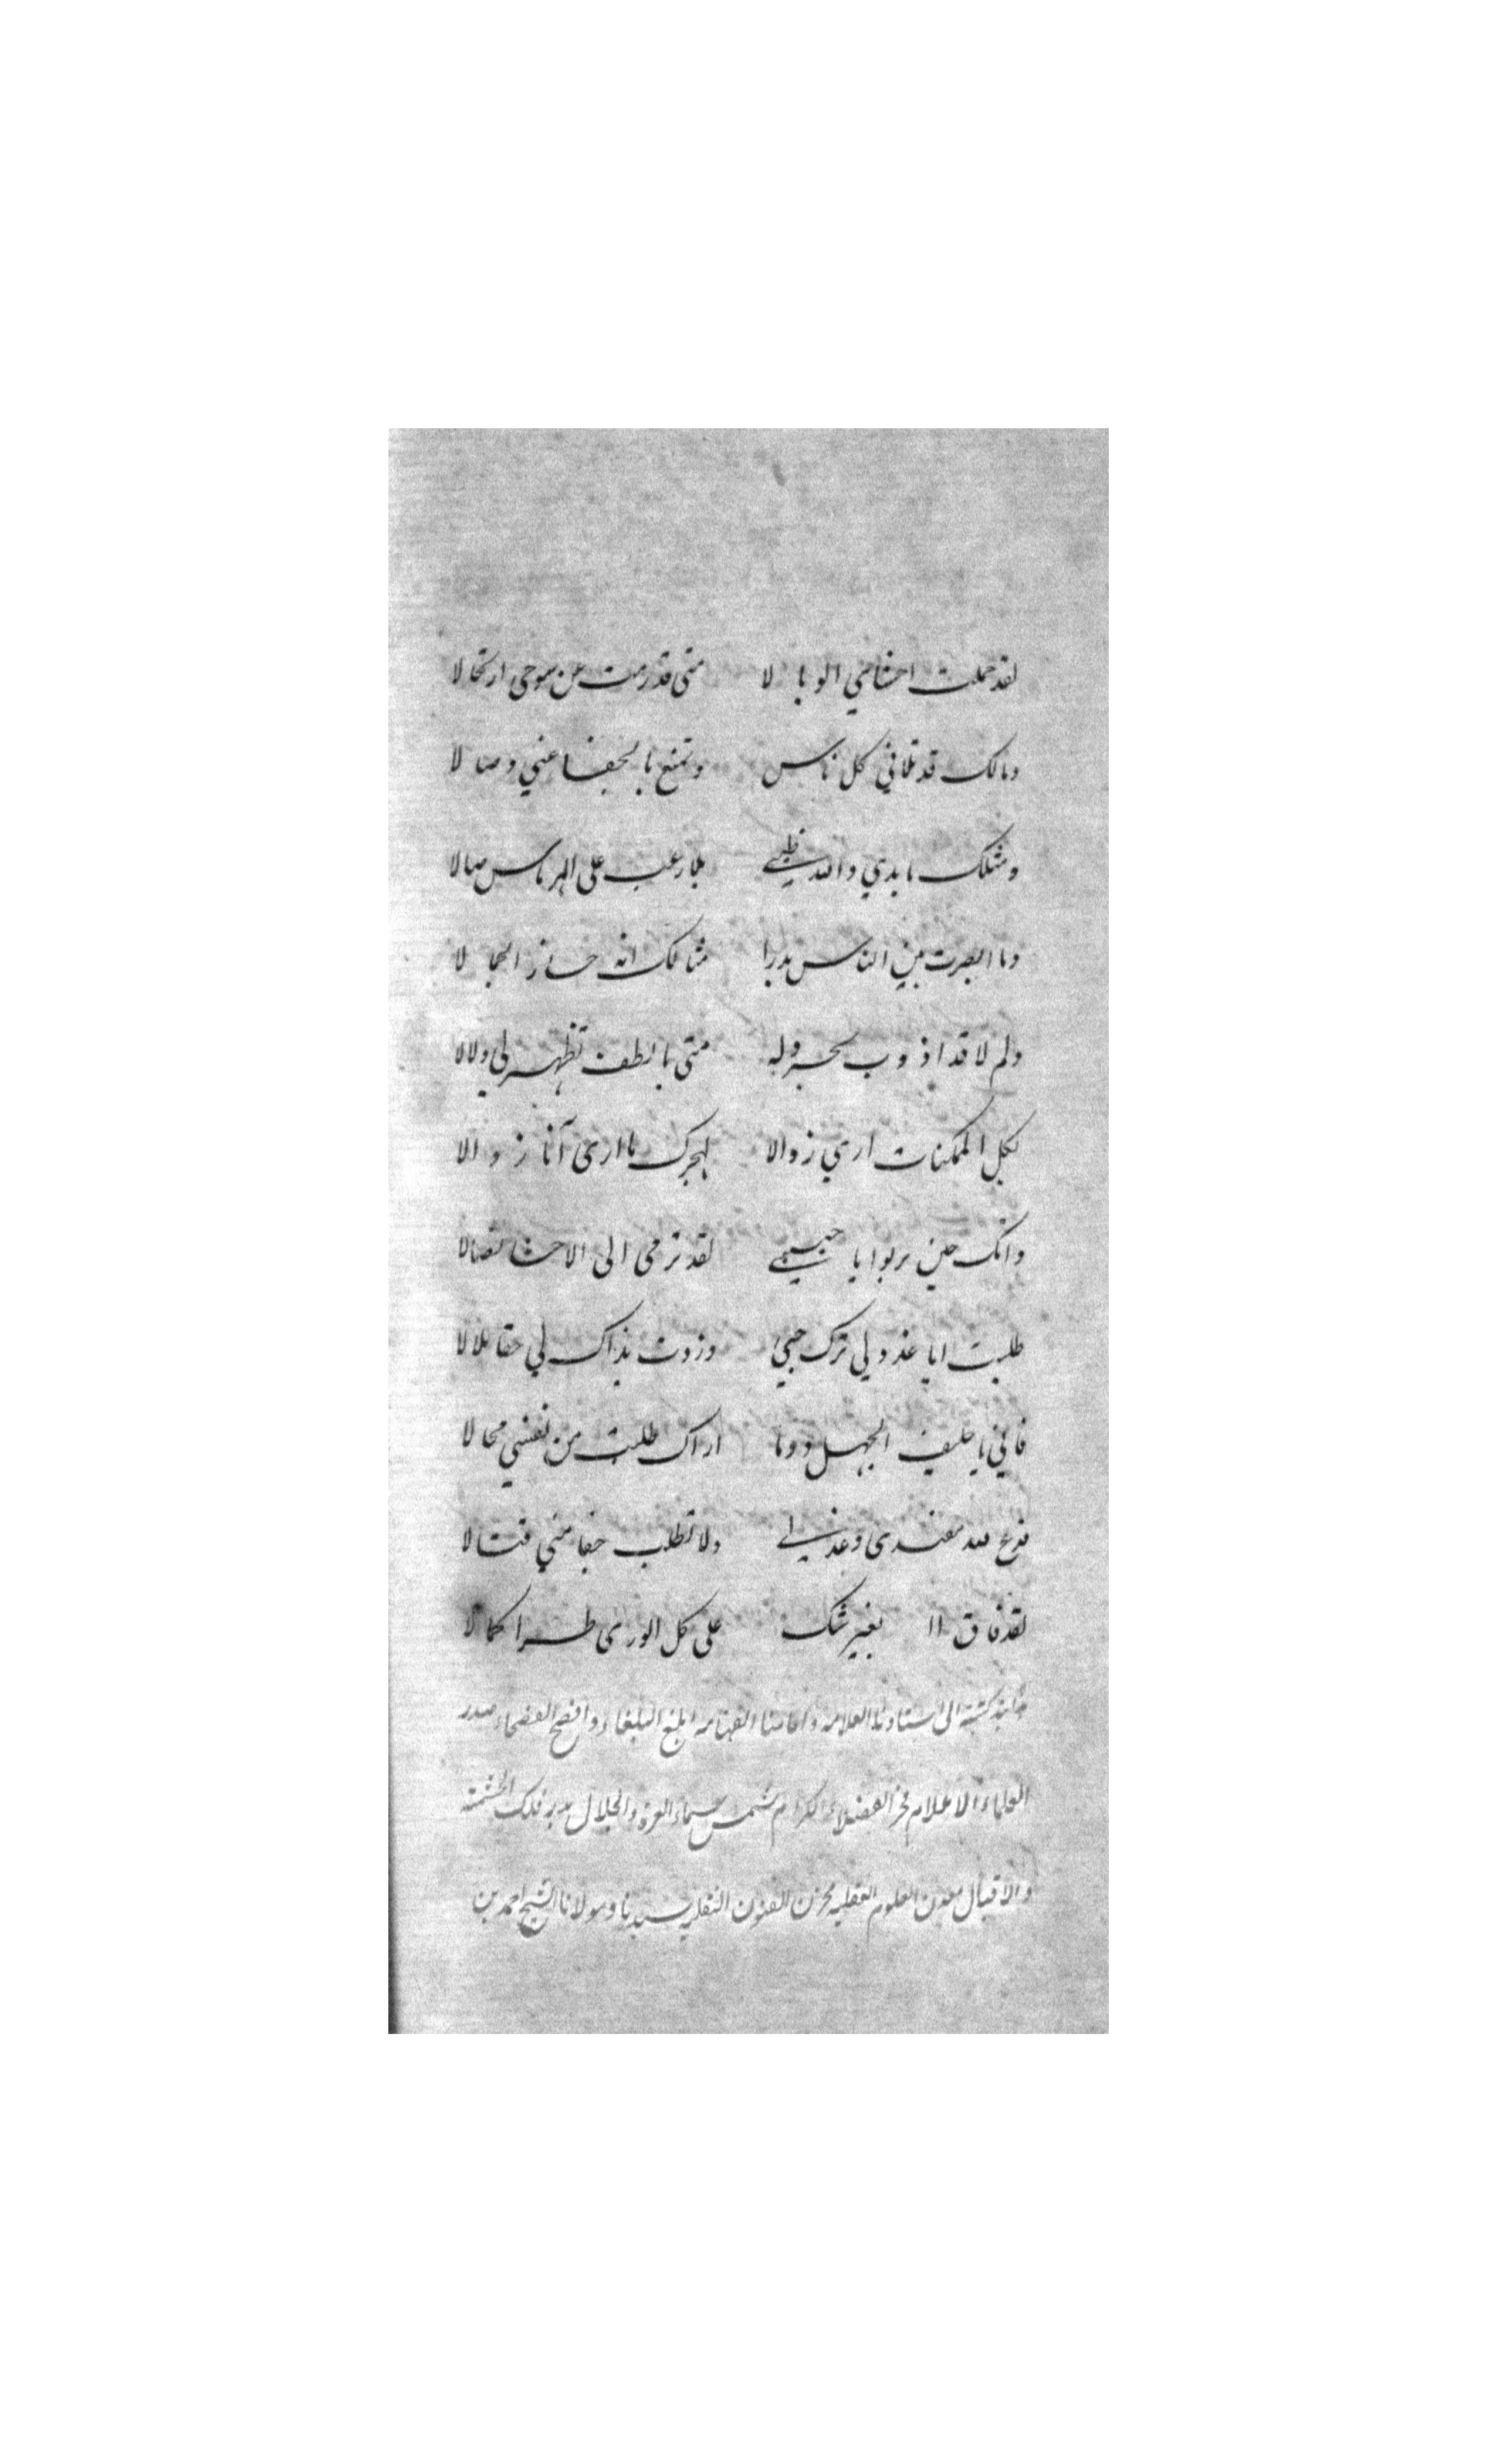 لقد حملت احشائي الوبالا متى قد رمت عن سوحى ارتحالا
ومالك قد تلاقي كل ناس وتمنع بالجفا عني وصالا
ومثلك ما بدي والله ظبي بلا رعب على الهرماس صالا
وما ابصرت بين الناس بدرا مثالك انه حاز الجمالا
ولم لا قد اذوب بحر وله متى بالطف تظهر لي دلالا
لكل الممكنات ارى زوالا لهجرك ما ارى آنا زوالا
وانك حين تربوا يا حبيبي لقد ترمى الى الاحشا نصالا
طلبت ايا عذولي ترك حبي وزدت بذاك لي حقا ملالا
فاني يا حليف الجهل دوما اراك طلبت من نفسي محالا
فدع لله مفندى وعذلي ولا تطلب جفا مني قتالا
لقد فاق بغير شك على كل الورى طرا كمالا
كتبته الى استادنا العلامه الفهامه ابلغ البلغاء وافصح الفصحاء صدر
العلماء الاعلام فخر الفضلاء الكرام شمس سماء العزة والجلال بدر فلك الحشمة
والاقبال معدن العلوم العقليه مخزن الفنون النقليه سيدنا ومولانا الشيخ احمد بن